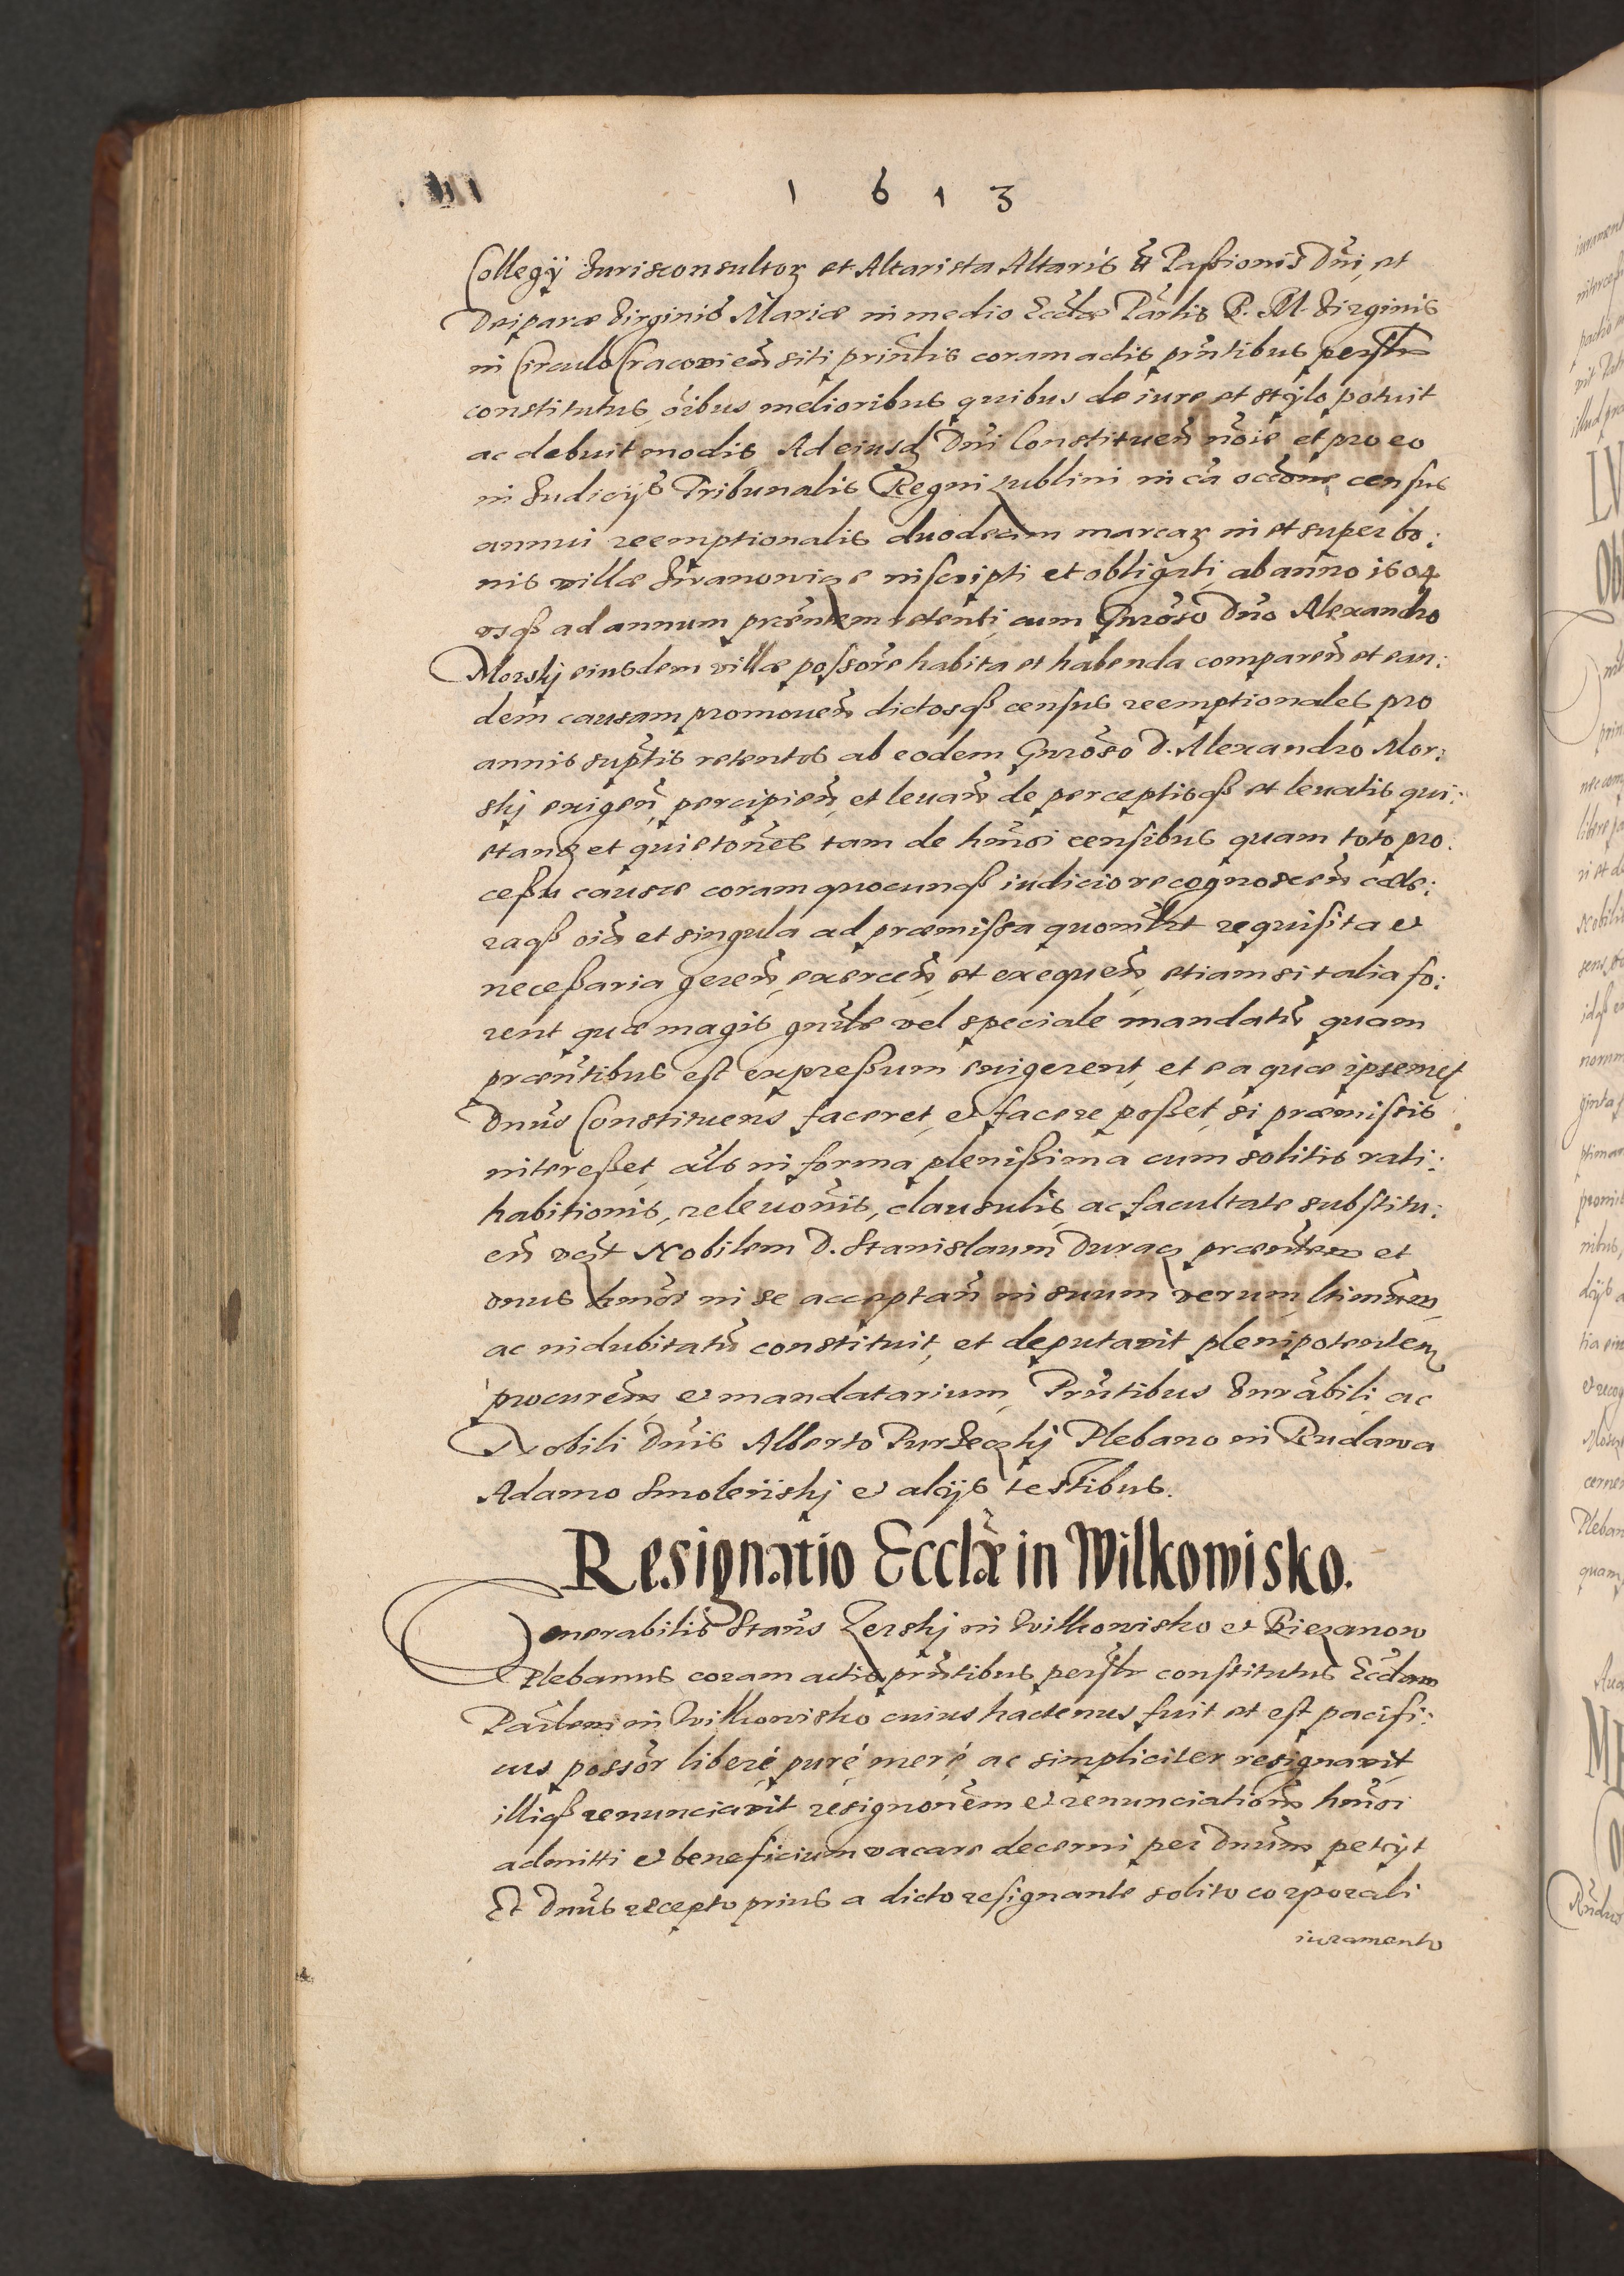 1613
Collegÿ Jurisconsultoꝝ et Altarista Altaris tt Passionis Dni, et
Deiparæ Virginis Mariæ in medio Ecclæ Parlis B. M. Virginis
in Circulo Cracovieñ siti prinlis coram actis prntibus perslr
constitutus, oibus melioribus quibus de iure et stÿlo potuit
ac debuit modis, Ad eiusdẽ Dni Constitueñ noie et pro eo
in Judicÿs Tribunalis Regni Lublini in cã occõne census
annui reemptionalis duodecim marcaꝝ in et super bo:
nis villæ Iwanowice inscripti et obligati, ab anno 1604
usqꝫ ad annum præsñtem retenti, cum Gnroso Dno Alexandro
Morskj eiusdem villæ possore habita et habenda compareñ et ean:
dem causam promoueñ dictosqꝫ census reemptionales pro
annis suptis retentos ab eodem Gnroso D. Alexandro Mor:
skj exigeñ, percipieñ, et leuañ de perceptisqꝫ et leuatis qui:
etandꝫ et quietones tam de hmoi censibus quam toto pro:
cessu causæ coram quocunqꝫ iudicio recognosceñ cæte:
raqꝫ oia et singula ad præmissa quomlbt requisita et
necessaria gereñ, exerceñ, et exequeñ, etiamsi talia fo:
rent quæ magis gnrale vel speciale mandatũ quam
præsntibus est expressum exigerent, et ea quæ ipsemet
Dnus Constituens faceret, et facere posset, si præmissis
interesset, als in forma plenissima cum solitis rati:
habitionis, releuonis, clausulis, ac facultate substitu:
eñ vczt Nobilem D. Stanislaum Duracz præsntem et
onus hmoi in se acceptañ in suum verum, ltimum,
ac indubitatũ constituit, et deputavit plenipotentem
procurem, et mandatarium, Prntibus Vnrabili ac
Nobili Dnis Alberto Purzeczkj Plebano in Rudawa
Adamo Smoleńskj et alÿs testibus.
Resignatio Ecclæ in Wilkowisko.
Venerabilis Stans Zerskj in Wilkowisko et Biezanow
Plebanus coram actis prntibus perslr constitutus Ecclam
Parlem in Wilkowisko cuius hactenus fuit et est pacifi:
cus possor liberé, puré, meré, ac simpliciter resignavit,
illiqꝫ renunciavit resignonem et renunciationem hmoi
admitti et beneficium vacare decerni per Dnum petÿt
Et Dnus recepto prius a dicto resignante solito corporali
iuramento